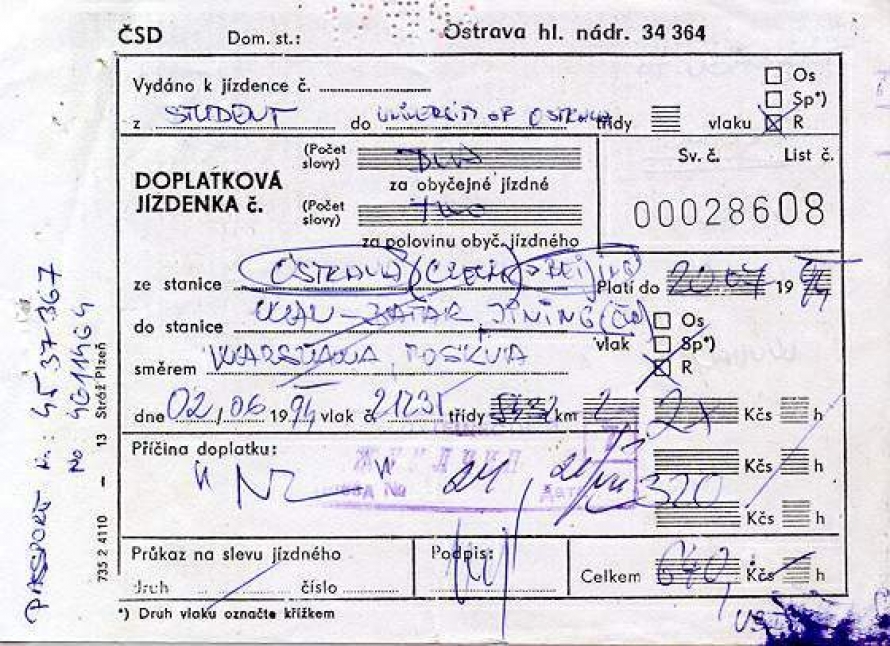 ČSD Dom. st.: Ostrava hl. nádr. 34 364
Vydáno k jízdence č.
Os
Sp*)
z STUDENT do UNIVERSITY OF OSTRAVA třídy vlaku R
DOPLATKOVÁ JÍZDENKA č.
(Počet slovy) DVA
za obyčejné jízdné
(Počet slovy) TWO
za polovinu obyč. jízdného
Sv. č. List č.
00028608
ze stanice OSTRAVA (CZECH) Platí do 20.07 1994
do stanice ULAN-BATAR JINING (ČÍN)
Os
vlak Sp*)
R
směrem WARSZAWA, MOSKVA
dne 02/06 1994 vlak č. 21231 třídy km 2 2x Kčs h
Příčina doplatku:
Kčs h
320
Kčs h
Průkaz na slevu jízdného
druh číslo
Podpis:
Celkem 640, Kčs h
US
*) Druh vlaku označte křížkem
PASSPORT N.: 4537367
No 4G11464
735 2 4110 — 13 Stráž Plzeň